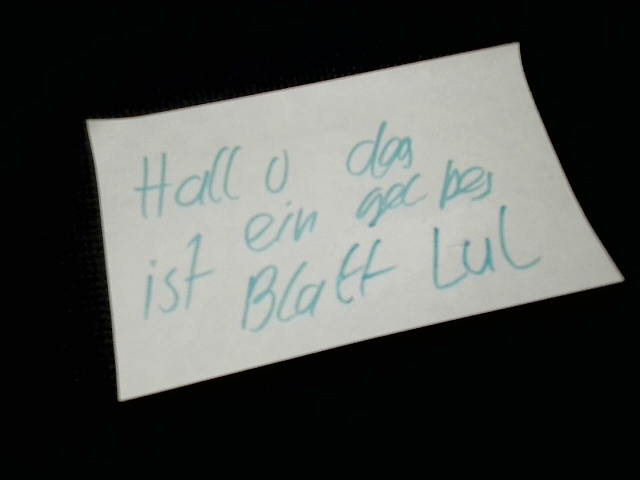 Hallo das
ist ein gelbes
Blatt LuL